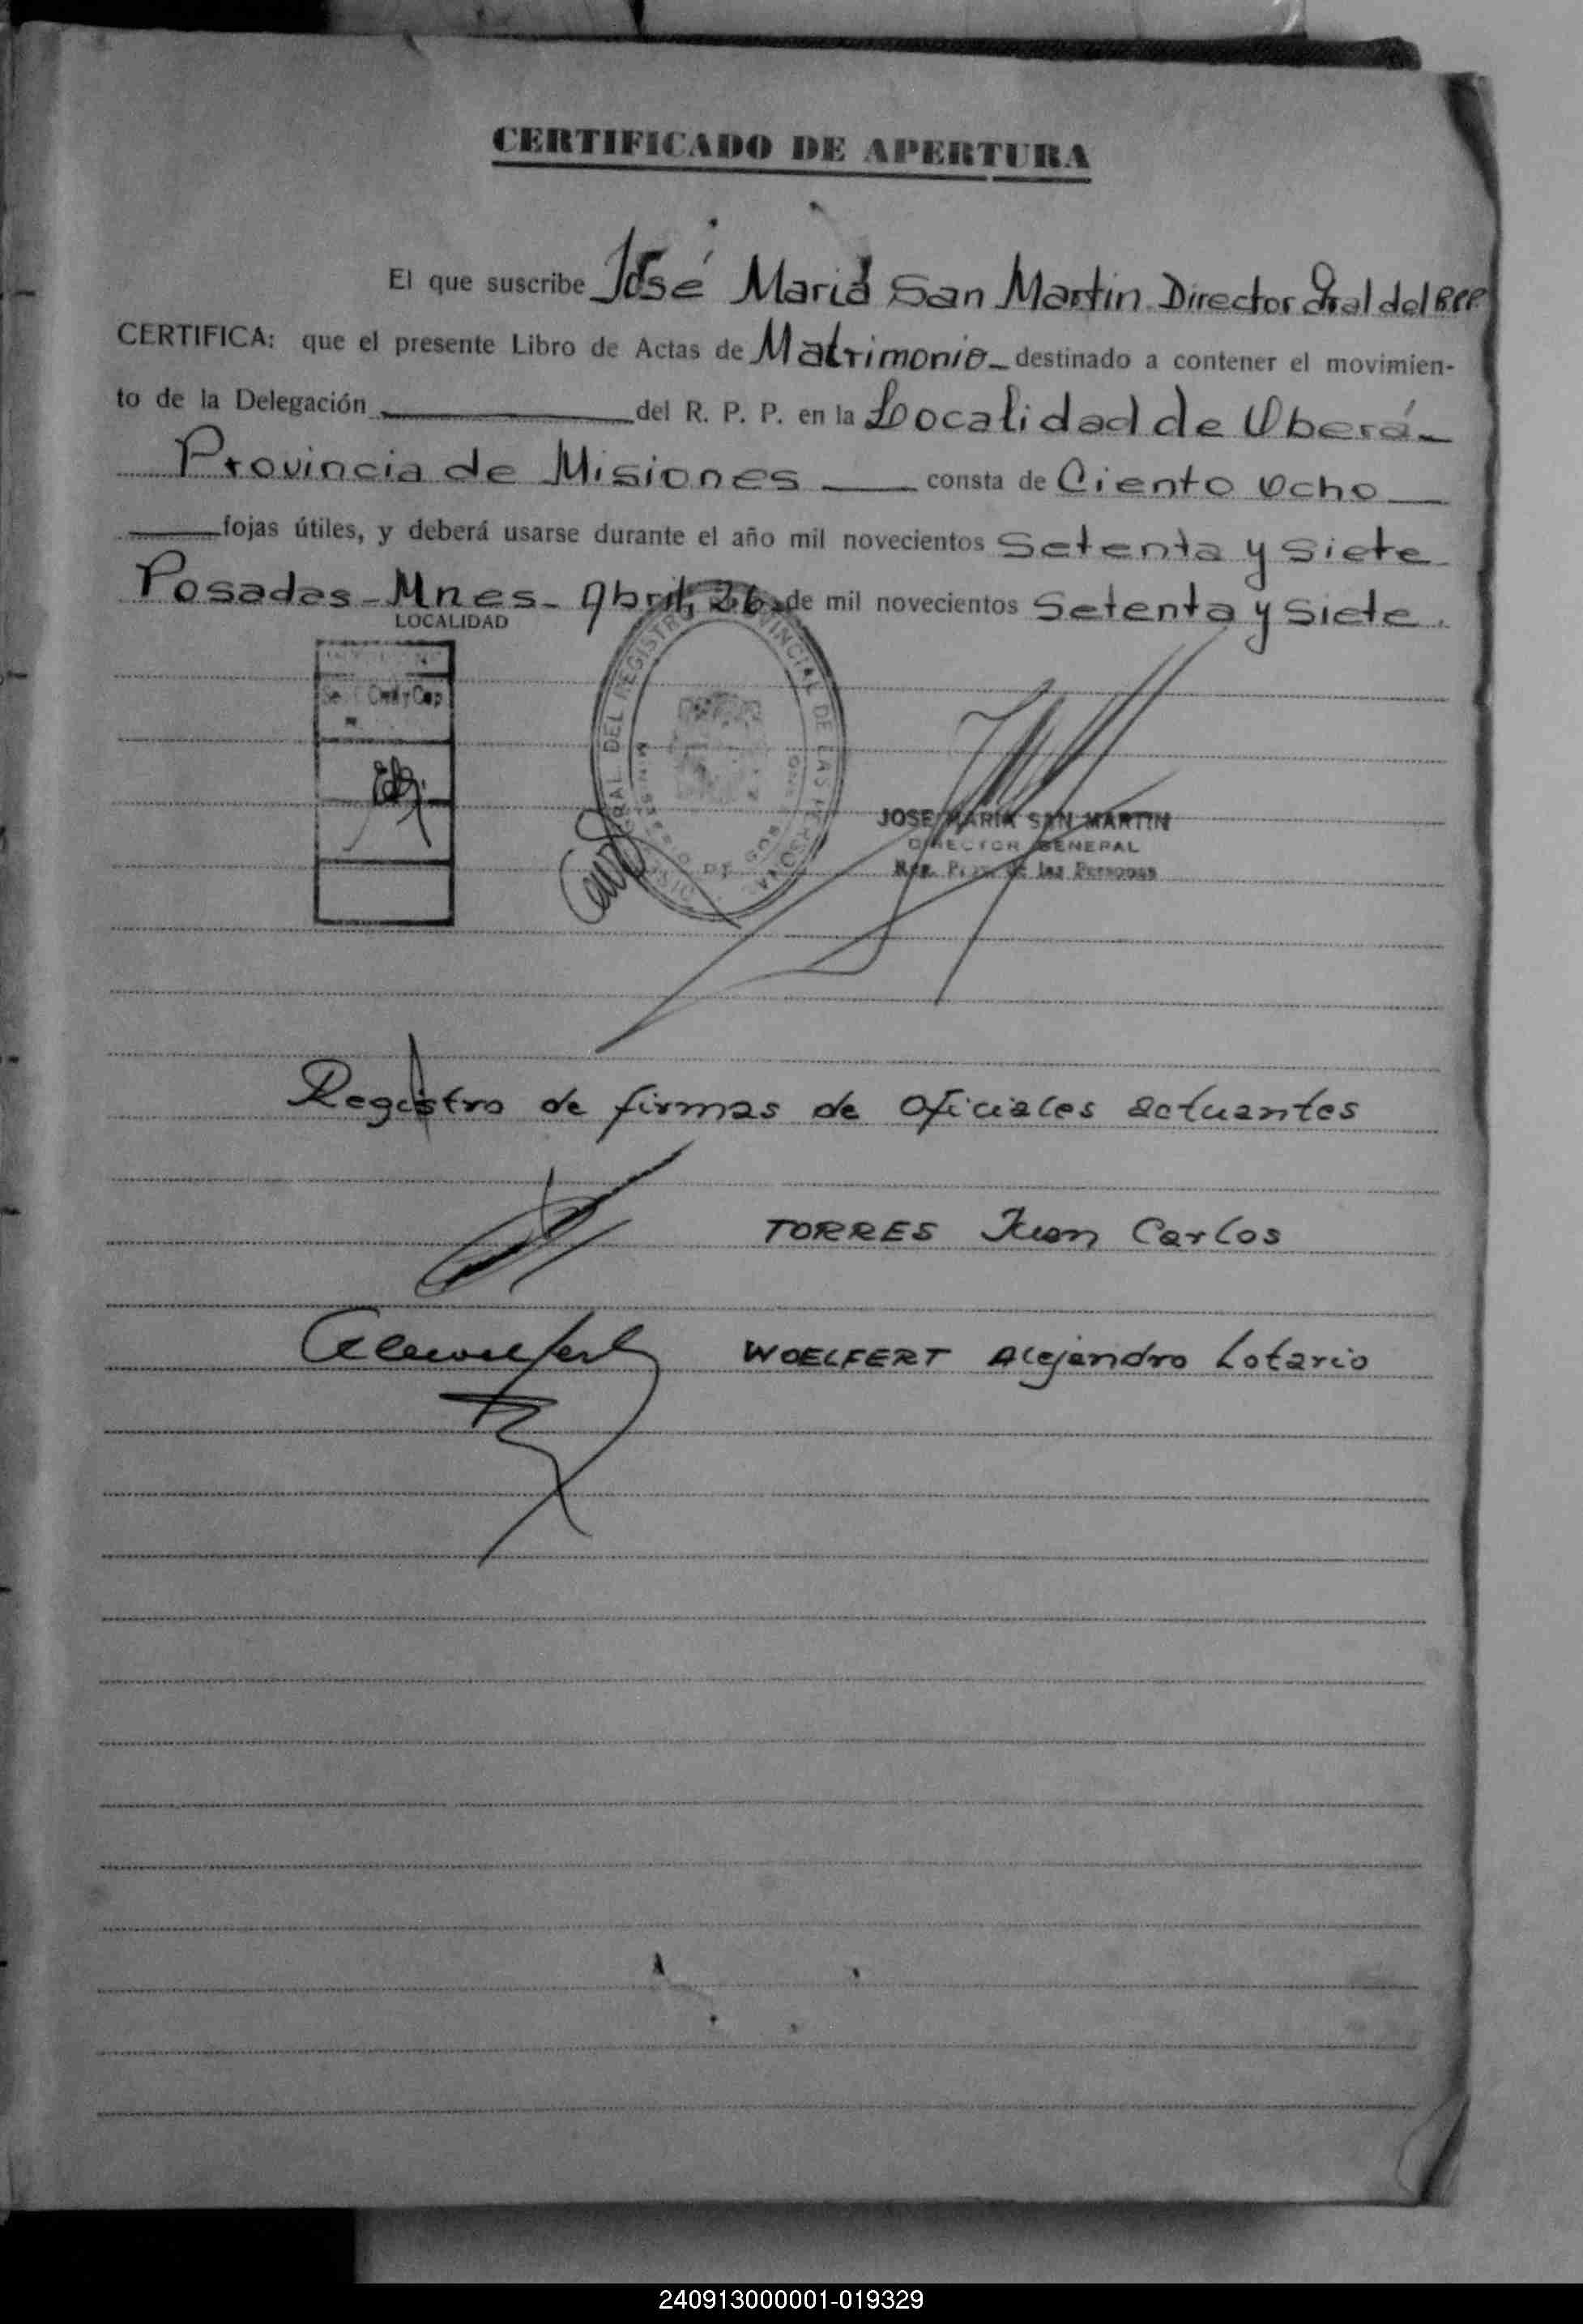 CERTIFICADO DE APERTURA
El que suscribe José Maria San Martin Director Gral del RPP
CERTIFICA: que el presente Libro de Actas de Matrimonio destinado a contener el movimien-
to de la Delegación del R. P. P. en la Localidad de Oberá
Provincia de Misiones consta de Ciento Ocho
fojas útiles, y deberá usarse durante el año mil novecientos Setenta y Siete
Posadas - Mnes - Abril, 26 de mil novecientos Setenta y Siete.
LOCALIDAD
JOSE MARIA SAN MARTIN
DIRECTOR GENERAL
de las Personas
Registro de firmas de oficiales actuantes
TORRES Juan Carlos
WOELFERT Alejandro Lotario
240913000001-019329